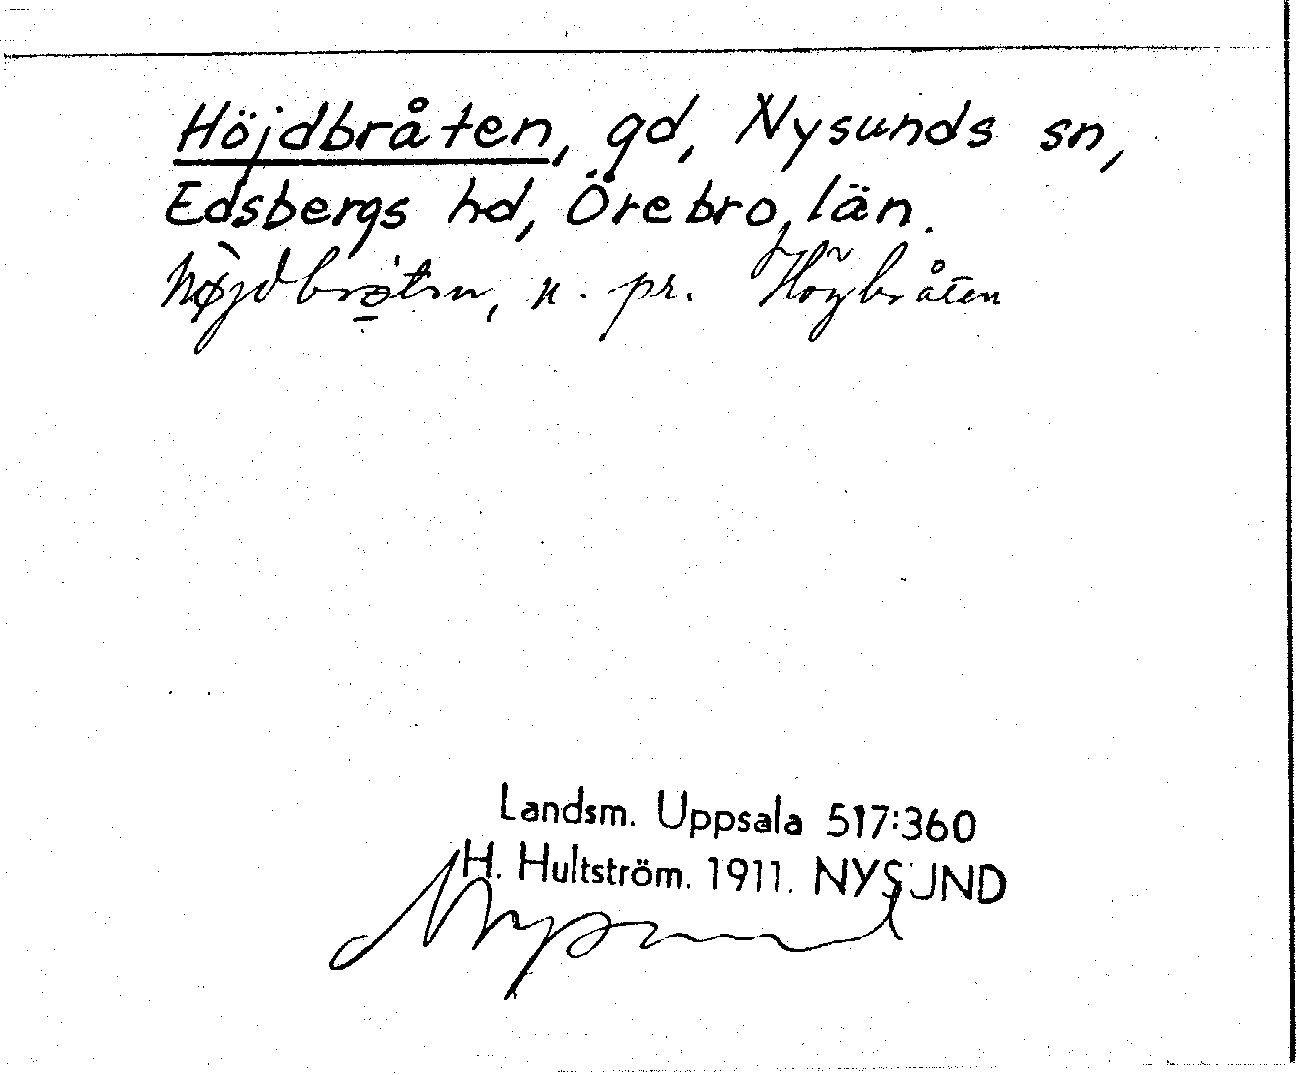 Höjdbråten, gd, Nysunds sn,
Edsbergs hd, Örebro, län.
n. pr. Höjbråten
Landsm. Uppsala 517:360
H. Hultström. 1911. NYSUND
Nysund